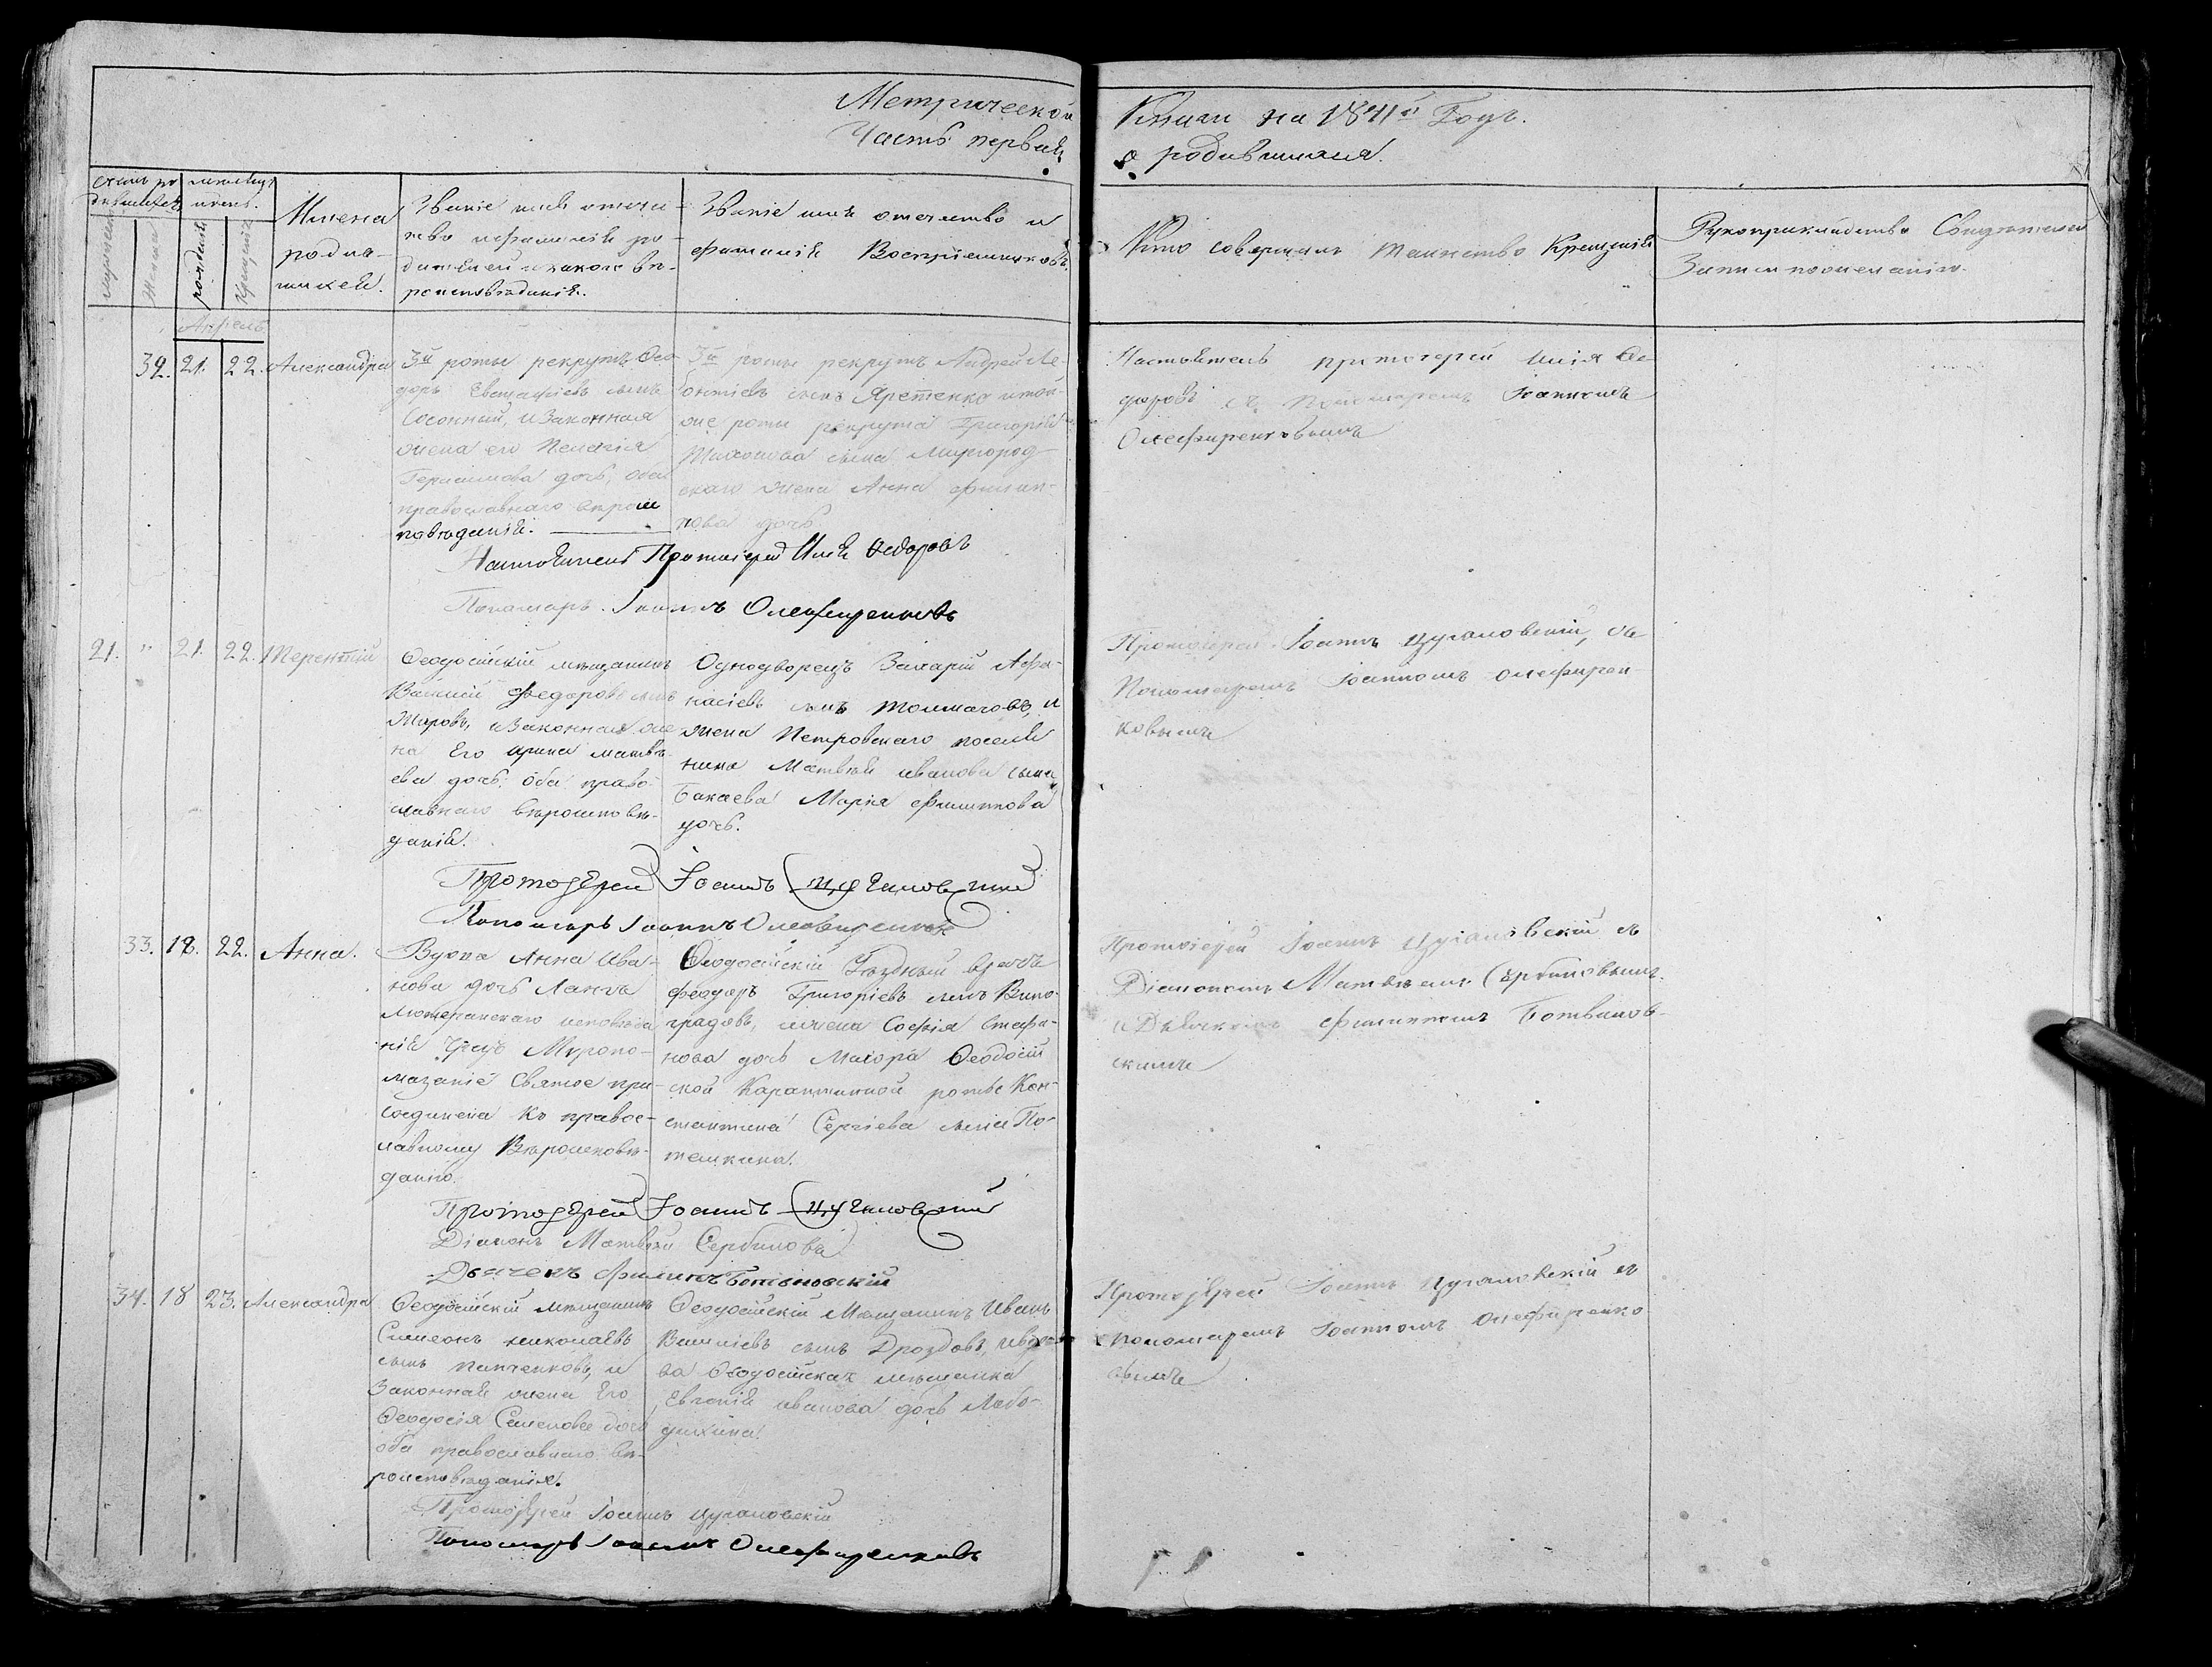 Метрической
Часть первая
Книги на 1841й Годъ.
о родившихся.
мужеска
женска
рожденія
крещенія
Имена
родив-
шихся.
Званіе имя отече-
ство и фамилія ро-
дителей и какого вѣ-
роисповѣданія.
Званіе имя отечество и
фамилія Воспріемниковъ.
Кто совершалъ таинство Крещенія
Рукоприкладство Свидѣтелей
Записи по желанію.
Апрель
32. 21. 22. Александра
3й роты рекрутъ Ѳео
доръ Евстафіевъ сынъ
и Законная
жена его Пелагія
Герасимова дочь, оба
православнаго вѣроис
повѣданія.
3й роты рекрутъ Андрей Ле-
онтіевъ сынъ Яременко и той-
же роты рекрута Григорія
сына Миргород-
скаго жена Анна Филип-
пова дочь
Настоятель протоіерей Илія Ѳе
доровъ съ Пономаремъ Іоанномъ
Олефиренковымъ
Настоятель Протоіерей Илія Ѳедоровъ
Понамарь Іоаннъ Олефиренковъ
21. " 21. 22. Терентій
Ѳеодосійскій мѣщанинъ
Василій Федоровъ сынъ
Жировъ, и Законная же
на Его Ирина Матвѣ-
ева дочь: оба право-
славнаго вѣроисповѣ-
данія.
Однодворецъ Захарій Афа-
насіевъ сынъ Толмачовъ, и
жена Петровскаго поселя
нина Матвѣя Иванова сына
Бакаева Марія Филиппова
дочь.
Протоіерей Іоаннъ Цугановскій, съ
Пономаремъ Іоанномъ Олефирен-
ковымъ
Протоіерей Іоаннъ Цугановскій
Пономарь Іоаннъ Олефиренковъ
33. 18. 22. Анна.
Вдова Анна Ива-
нова дочь
Лютеранскаго исповѣда
нія чрезъ Муропо-
мазаніе Святое при-
соединена къ правос-
лавному Вѣроисповѣ-
данію.
Ѳеодосійскій Уѣздный врачъ
Феодоръ Григоріевъ сынъ Вино-
градовъ, и жена Софія Стефа-
нова дочь Маіора Ѳеодосій
ской Карантинной роты Кон-
стантина Сергіева сына По-
темкина.
Протоіерей Іоаннъ Цугановскій съ
Діакономъ Матвѣемъ Сербиновымъ
и Дьячкомъ Филиппомъ Ботвинов-
скимъ
Протоіерей Іоаннъ Цугановскій
Діаконъ Матвѣй Сербиновъ
Дьячекъ Филипъ Ботвиновскій
34. 18 23. Александра
Ѳеодосійскій мѣщанинъ
Симеонъ Николаевъ
сынъ Панченковъ, и
Законная жена Его
Ѳеодосія Семенова дочь
оба православнаго вѣ-
роисповѣданія.
Ѳеодосійскій Мѣщанинъ Иванъ
Василіевъ сынъ Дроздовъ, и вдо
ва Ѳеодосійская мѣщанка
Евгенія Иванова дочь Лебе-
дихина.
Протоіерей Іоаннъ Цугановскій съ
пономаремъ Іоанномъ Олефиренко
вымъ
Протоіерей Іоаннъ Цугановскій
Пономарь Іоаннъ Олефиренковъ